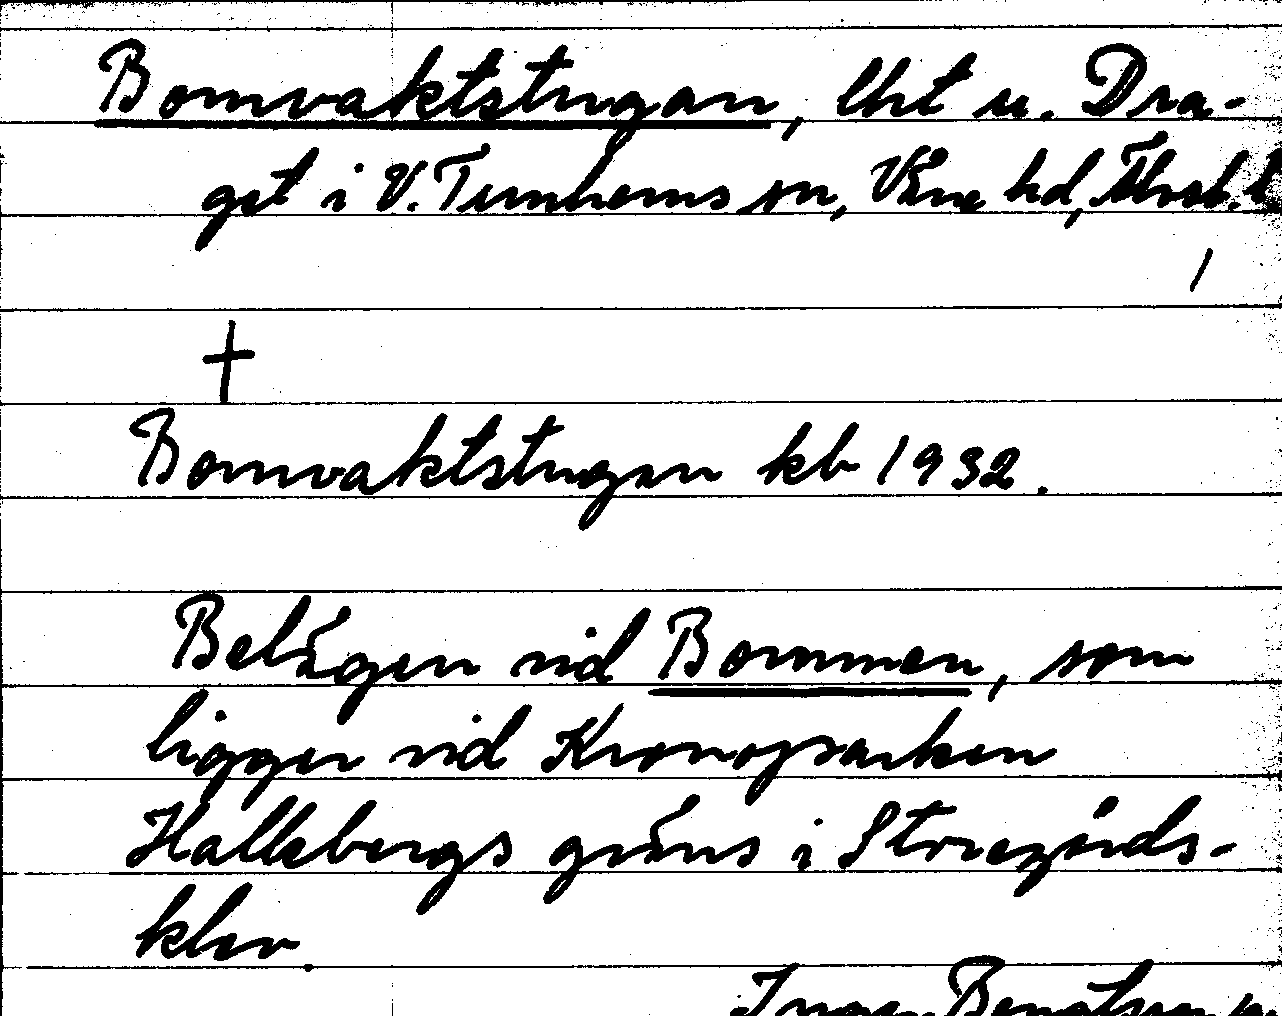 Bomvaktstugan, lht u. Dra-
get i V. Tunhems sn, Väne hd, Älvsb. l
/
†
Bomvaktstugan kb 1932.
Belägen vid Bommen, som
ligger vid Kronoparken
Hallebergs gräns i Storegårds-
klev.
Inger Bengtsson